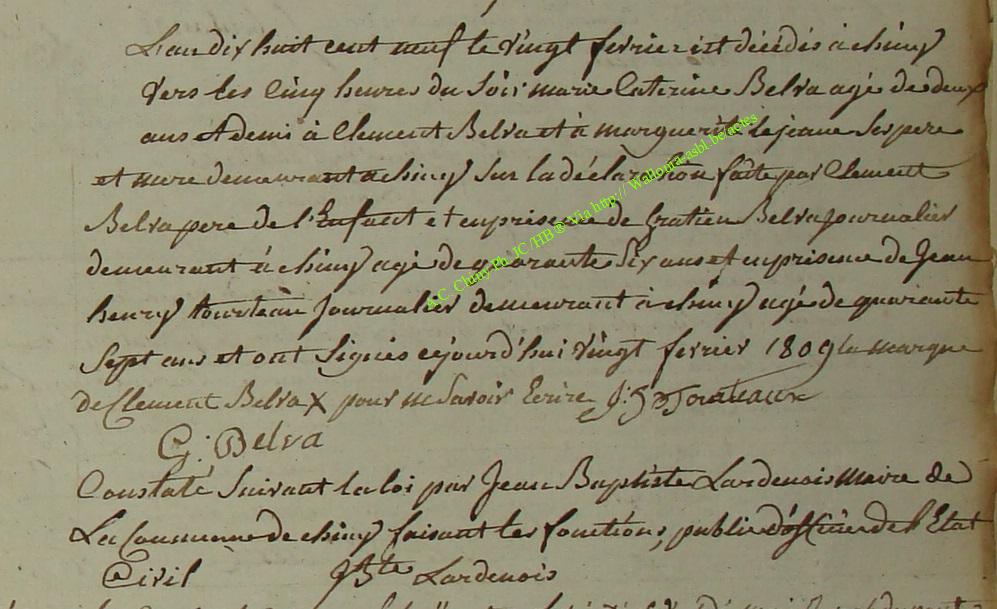 L'an dix huit cent neuf le vingt fevrier est décédés à chiny
vers les cinq heures du soir marie Caterine Belva agé de deux
ans et demi à Clement Belva et à marguerite lejeune ses pere
et mere demeurant a chiny sur la déclaration faite par Clement
Belva pere de l'Enfant et en prisence de Gratien Belva Journalier
demeurant à chiny agé de quarante Six ans et en prisence de Jean
henry tourteau Journalier demeurant à chiny agé de quarante
Sept ans et ont Signés cejourd'hui vingt fevrier 1809 la marque
de Clement Belva X pour ne Savoir Ecrire J: h Tourteaux
G: Belva
Constaté Suivant la loi par Jean Baptiste Lardenois Maire de
La Commune de chiny faisant les fonctions public d'officier de l'Etat
Civil Jbte Lardenois
A.C. Chiny Ph. JC/HB ® Via http:// Wallonia-asbl.be/actes